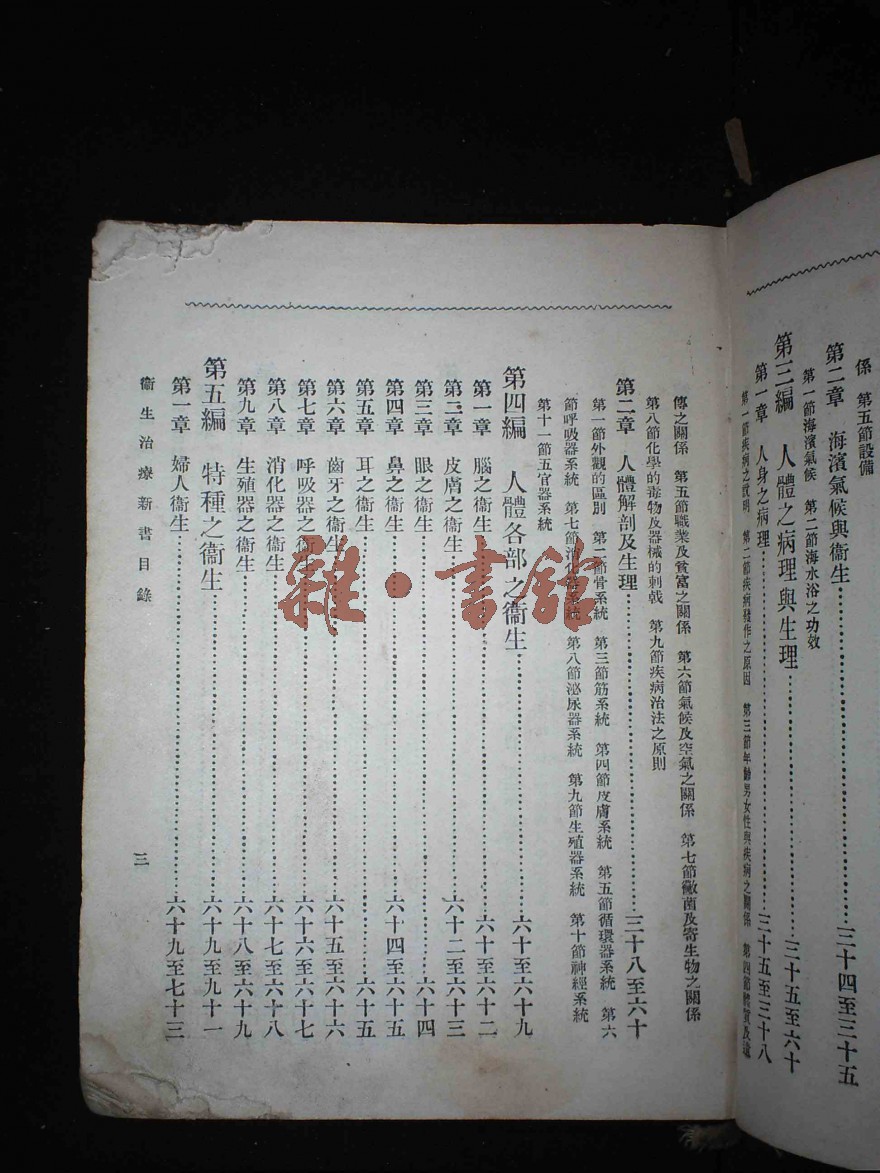 係　第五節設備
第二章　海濱氣候與衞生……三十四至三十五
第一節海濱氣候　第二節海水浴之功效
第三編　人體之病理與生理……三十五至六十
第一章　人身之病理……三十五至三十八
第一節疾病之說明　第二節疾病發作之原因　第三節年齡男女性與疾病之關係　第四節體質及遺
傳之關係　第五節職業及貧富之關係　第六節氣候及空氣之關係　第七節黴菌及寄生物之關係
第八節化學的毒物及器械的刺戟　第九節疾病治法之原則
第二章　人體解剖及生理……三十八至六十
第一節外觀的區別　第二節骨系統　第三節筋系統　第四節皮膚系統　第五節循環器系統　第六
節呼吸器系統　第七節消化器系統　第八節泌尿器系統　第九節生殖器系統　第十節神經系統
第十一節五官器系統
第四編　人體各部之衞生……六十至六十九
第一章　腦之衞生……六十至六十二
第二章　皮膚之衞生……六十二至六十三
第三章　眼之衞生……六十四
第四章　鼻之衞生……六十四至六十五
第五章　耳之衞生……六十五
第六章　齒牙之衞生……六十五至六十六
第七章　呼吸器之衞生……六十六至六十七
第八章　消化器之衞生……六十七至六十八
第九章　生殖器之衞生……六十八至六十九
第五編　特種之衞生……六十九至九十一
第一章　婦人衞生……六十九至七十三
衞生治療新書目錄
三
雜·書館